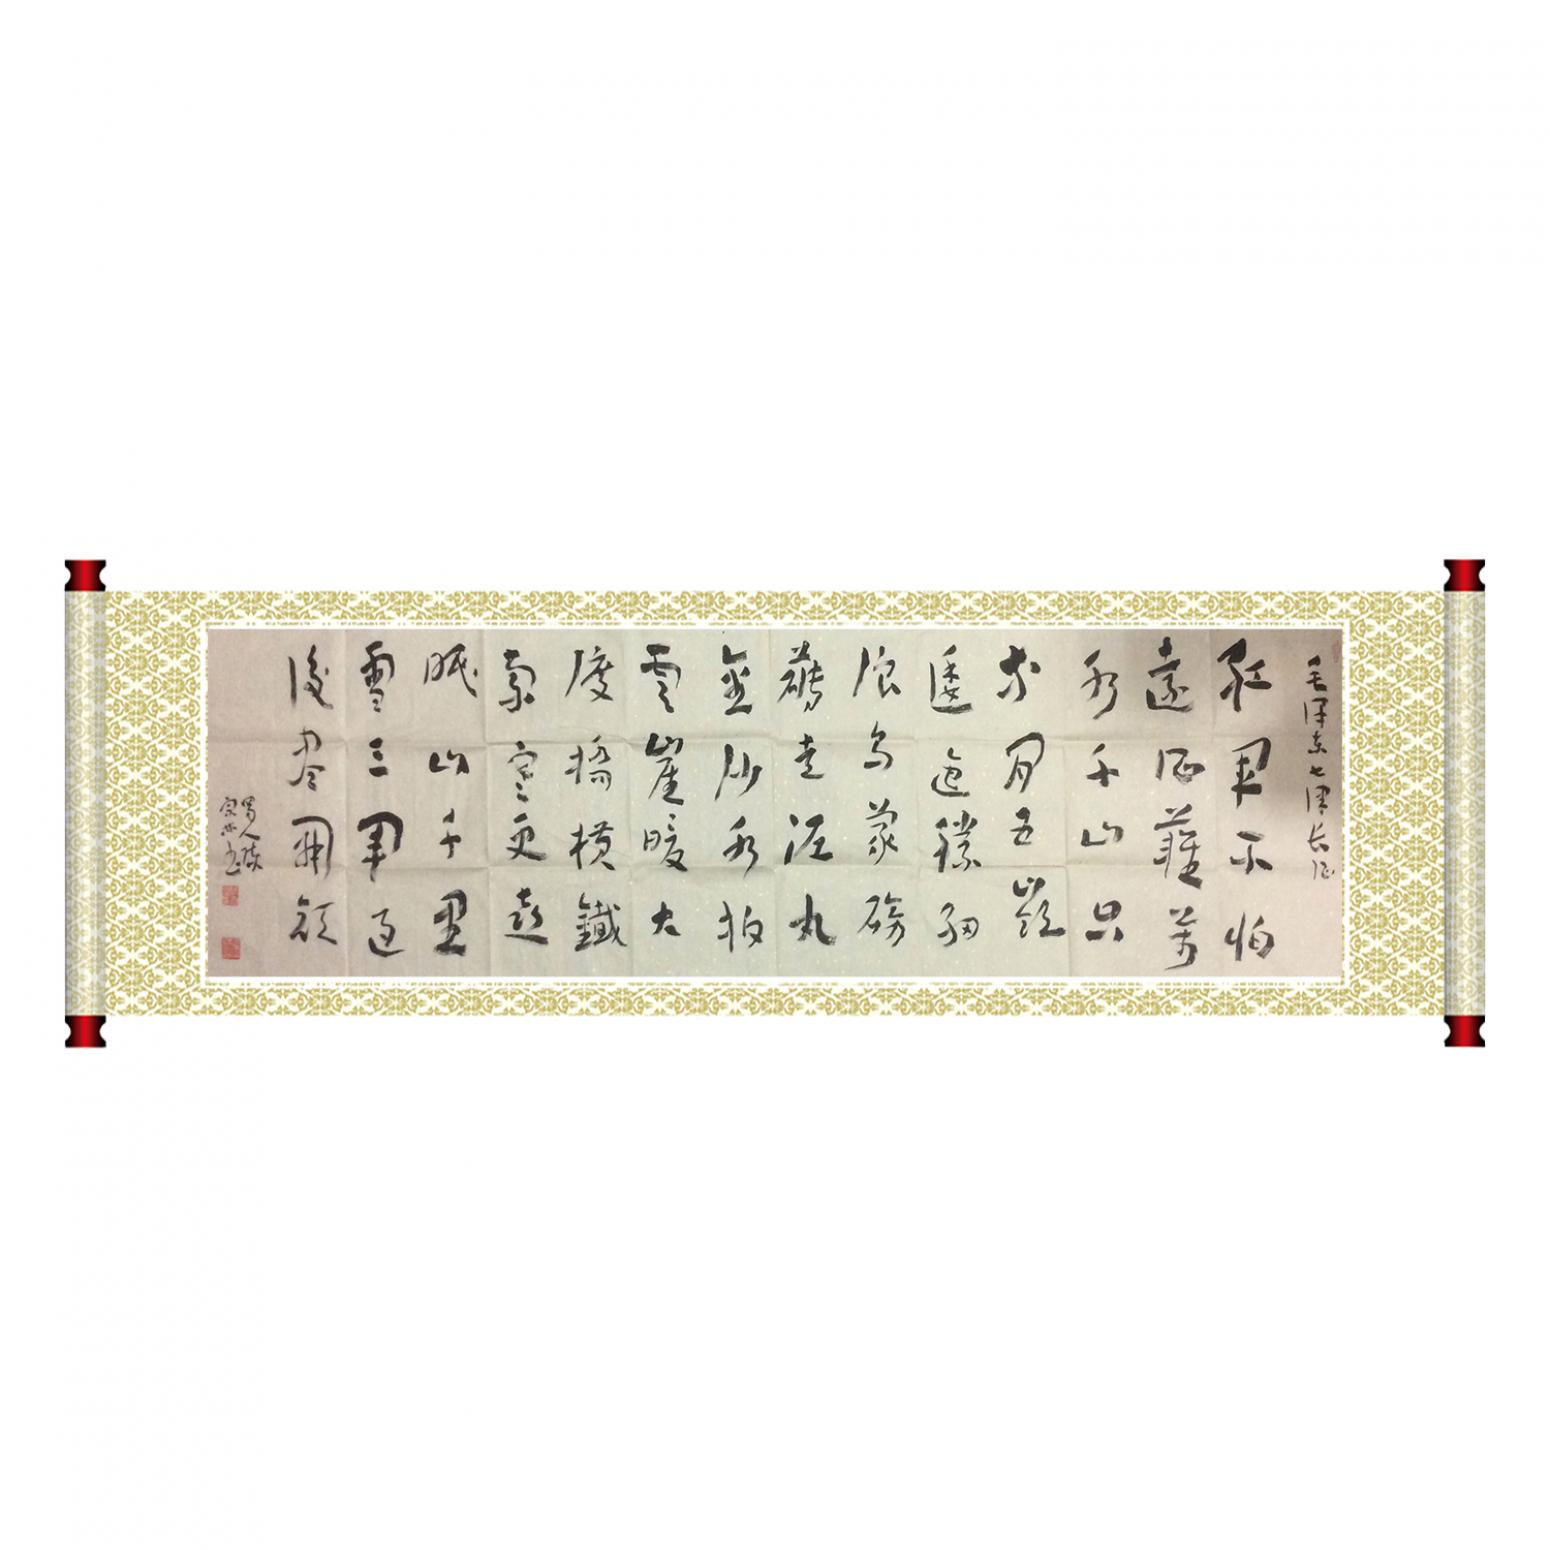 毛澤东七律长征
紅軍不怕
遠征難萬
水千山只
等閒五嶺
逶迤騰細
浪烏蒙磅
礴走泥丸
金沙水拍
雲崖暖大
度橋橫鐵
索寒更喜
岷山千里
雪三軍過
後盡開顏